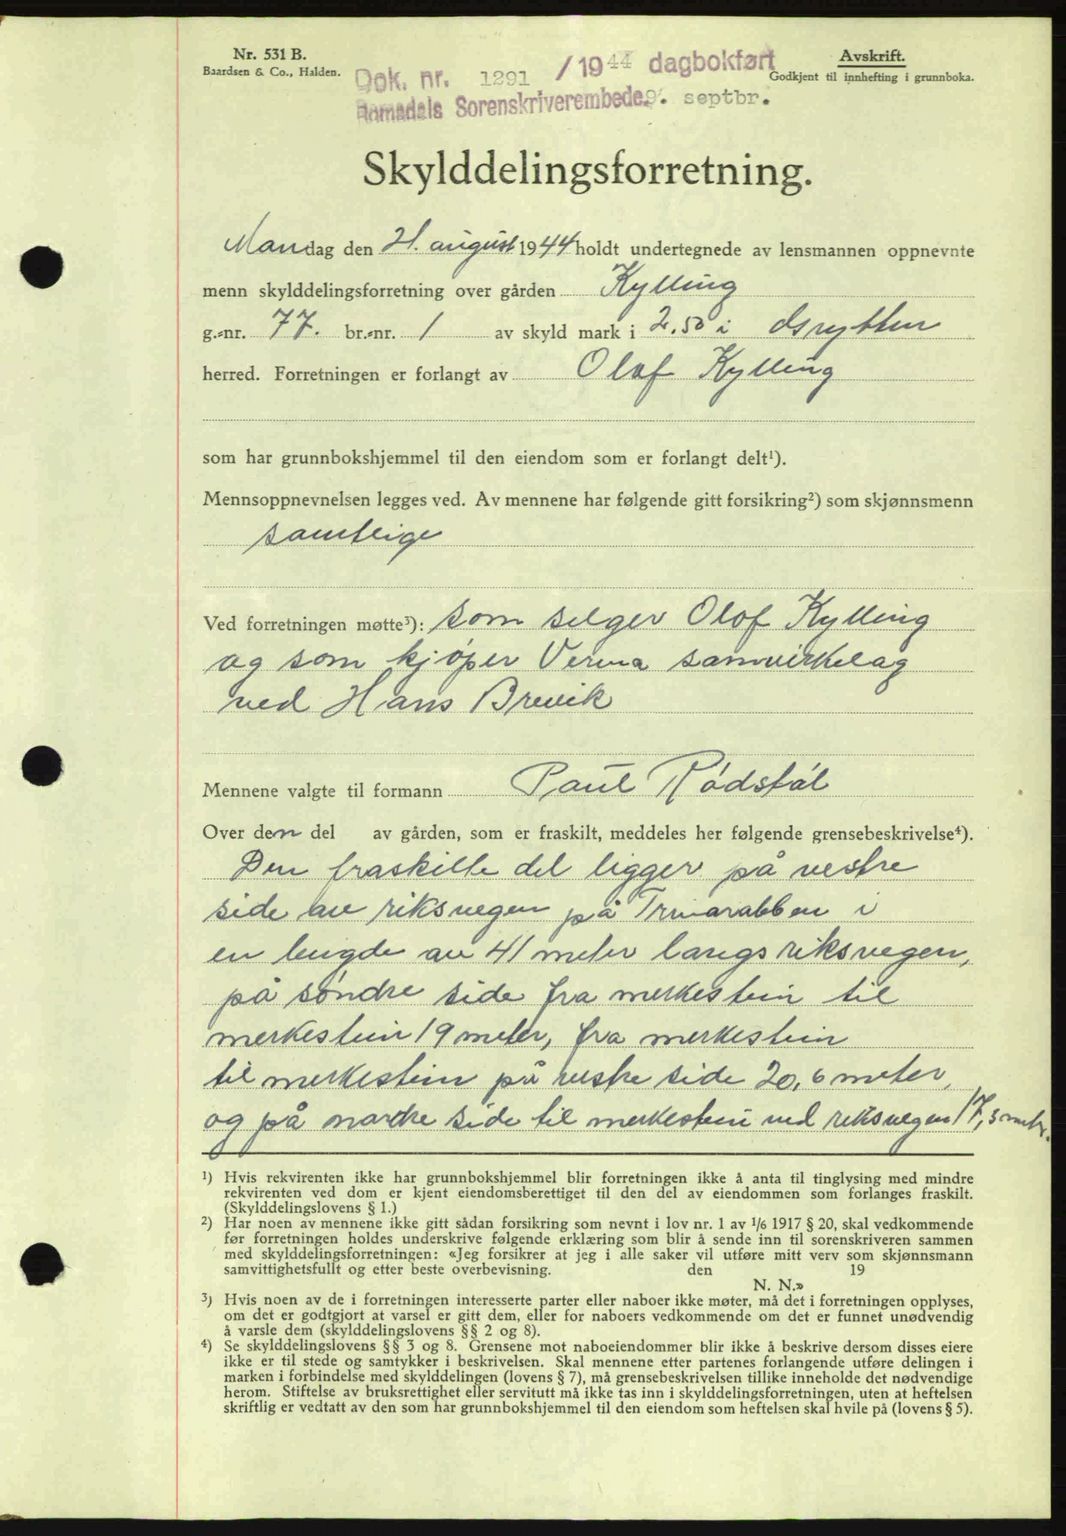 Nr. 531 B.
Baardsen & Co., Halden.
Dok. nr. 1291 /1944 dagbokført
Romsdals Sorenskriverembede 9. septbr.
Avskrift.
Godkjent til innhefting i grunnboka.
Skylddelingsforretning.
Mandag den 21. august 1944 holdt undertegnede av lensmannen oppnevnte
menn skylddelingsforretning over gården Kylling
g.-nr. 77. br.-nr. 1 av skyld mark i 2.50 i Grytten
herred. Forretningen er forlangt av Olaf Kylling
som har grunnbokshjemmel til den eiendom som er forlangt delt¹).
Mennsoppnevnelsen legges ved. Av mennene har følgende gitt forsikring²) som skjønnsmenn
samtlige
Ved forretningen møtte³): som selger Olof Kylling
og som kjøper Verma samvirkelag
ved Hans Brevik
Mennene valgte til formann Paul Rødstøl
Over den del av gården, som er fraskilt, meddeles her følgende grensebeskrivelse⁴).
Den fraskilte del ligger på vestre
side av riksvegen på i
en lengde av 41 meter langs riksvegen,
på søndre side fra merkestein til
merkestein 19 meter, fra merkestein
til merkestein på vestre side 20,6 meter,
og på nordre side til merkestein ved riksvegen 17,5 mtr.
¹) Hvis rekvirenten ikke har grunnbokshjemmel blir forretningen ikke å anta til tinglysing med mindre
rekvirenten ved dom er kjent eiendomsberettiget til den del av eiendommen som forlanges fraskilt.
(Skylddelingslovens § 1.)
²) Har noen av mennene ikke gitt sådan forsikring som nevnt i lov nr. 1 av 1/6 1917 § 20, skal vedkommende
før forretningen holdes underskrive følgende erklæring som blir å sende inn til sorenskriveren sammen
med skylddelingsforretningen: «Jeg forsikrer at jeg i alle saker vil utføre mitt verv som skjønnsmann
samvittighetsfullt og etter beste overbevisning. den 19
N. N.»
³) Hvis noen av de i forretningen interesserte parter eller naboer ikke møter, må det i forretningen opplyses,
om det er godtgjort at varsel er gitt dem, eller for naboers vedkommende om det er funnet unødvendig
å varsle dem (skylddelingslovens §§ 2 og 8).
⁴) Se skylddelingslovens §§ 3 og 8. Grensene mot naboeiendommer blir ikke å beskrive dersom disses eiere
ikke er til stede og samtykker i beskrivelsen. Skal mennene etter partenes forlangende utføre delingen i
marken i forbindelse med skylddelingen (lovens § 7), må grensebeskrivelsen tillike inneholde det nødvendige
herom. Stiftelse av bruksrettighet eller servitutt må ikke tas inn i skylddelingsforretningen, uten at heftelsen
skriftlig er vedtatt av den som har grunnbokshjemmel til den eiendom som heftelsen skal hvile på (lovens § 5).